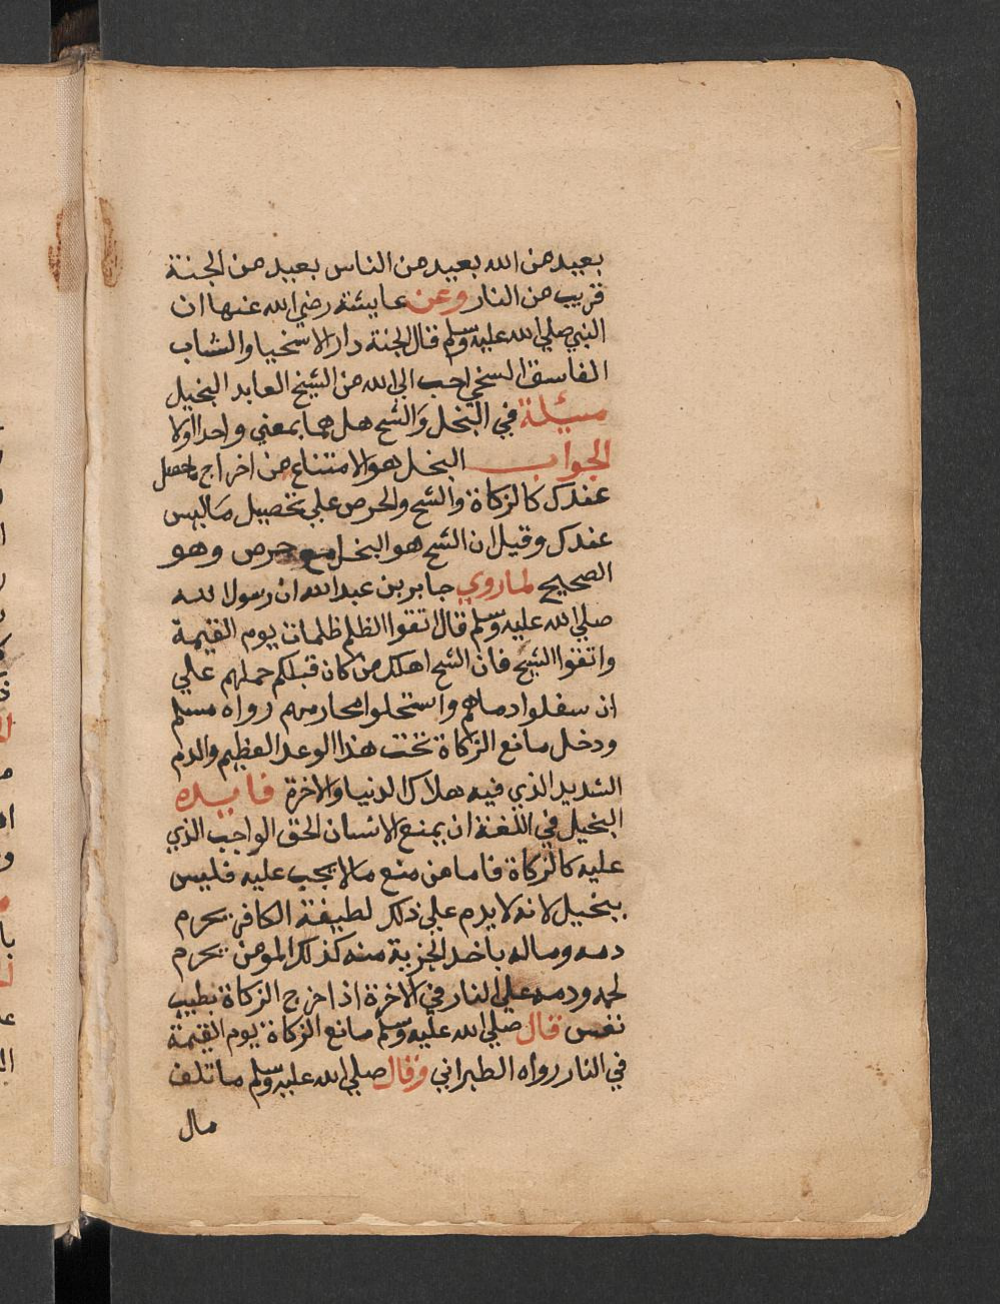 بعيد من الله بعيد من الناس بعيد من الجنة
قريب من النار وعن عايشة رضي الله عنها ان
النبي صلي الله عليه وسلم قال الجنة دار الاسخيا والشاب
الفاسق السخي احب الي الله من الشيخ العابد البخيل
مسئلة في البخل والشح هل هما بمعني واحد اولا
الجواب البخل هو الامتناع من اخراج ما حصل
عندك كالزكاة والشح والحرص علي تحصيل ما ليس
عندك وقيل ان الشح هو البخل مع حرص وهو
الصحيح لما روي جابر بن عبد الله ان رسول الله
صلي الله عليه وسلم قال اتقوا الظلم ظلمات يوم القيمة
واتقوا الشح فان الشح اهلك من كان قبلكم حملهم علي
ان سفلوا دماهم واستحلوا محارمهم رواه مسلم
ودخل مانع الزكاة تحت هذا الوعد العظيم والذم
الشديد الذي فيه هلاك الدنيا والاخرة فايده
البخيل في اللغة ان يمنع الانسان الحق الواجب الذي
عليه كالزكاة فاما من منع مالا يجب عليه فليس
ببخيل لانه لا يذم علي ذلك لطيفة الكافر يحرم
دمه وماله باخذ الجزية منه كذلك المومن يحرم
لحمه ودمه علي النار في الاخرة اذا اخرج الزكاة بطيب
نفس قال صلي الله عليه وسلم مانع الزكاة يوم القيمة
في النار رواه الطبراني وقال صلي الله عليه وسلم ما تلف
مال